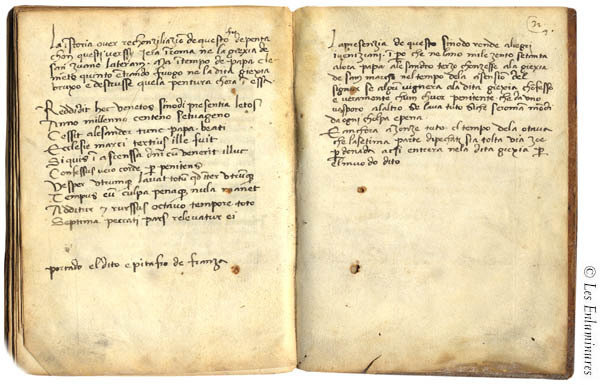 La istoria over rechonziliazio de questo fu depenta
chon questi verssi Jera i roma ne la giexia de
san zuane lateran. Ma i tempo de papa cle
mento quinto etando fuogo ne la dita giexia
bruxo e destrusse quela pentura chora

Reddidit hec venetos sinodi presentia letos
Anno milleno centeno setuageno
Cessit alesander tunc papa beati
Eclesie marci tertius ille fuit
Siquis i ascenssa dni cu venerit illuc
Confessus vero corde penitens
Vesper utrumque lavat totu utrumque
Tempus eu culpa penaque nula manet
Additur 7 rurssus octavo tempore toto
Septima peccati pars relevatur ei
portado el dito epitafio de franza
32
La presenzia de questo sinodo rende alegri
i veniziani. i po che ne lano mile zento setanta
alora papa alesandro terzo chonzesse ala giexia
de san marcho nel tempo dela asensio del
signor se algun vignera ala dita giexia chofesse
e veramente chuor penitente che da uno
vesporo alaltro se lava tuto sichè seroma modi
de ogni cholpa e pena
E anchora azonze tuto el tempo dela otava
che la setima parte di pechati sia tolta via zoe
perdonada a chi entrera nela dita giexia per
el muodo dito
© Les Enluminures